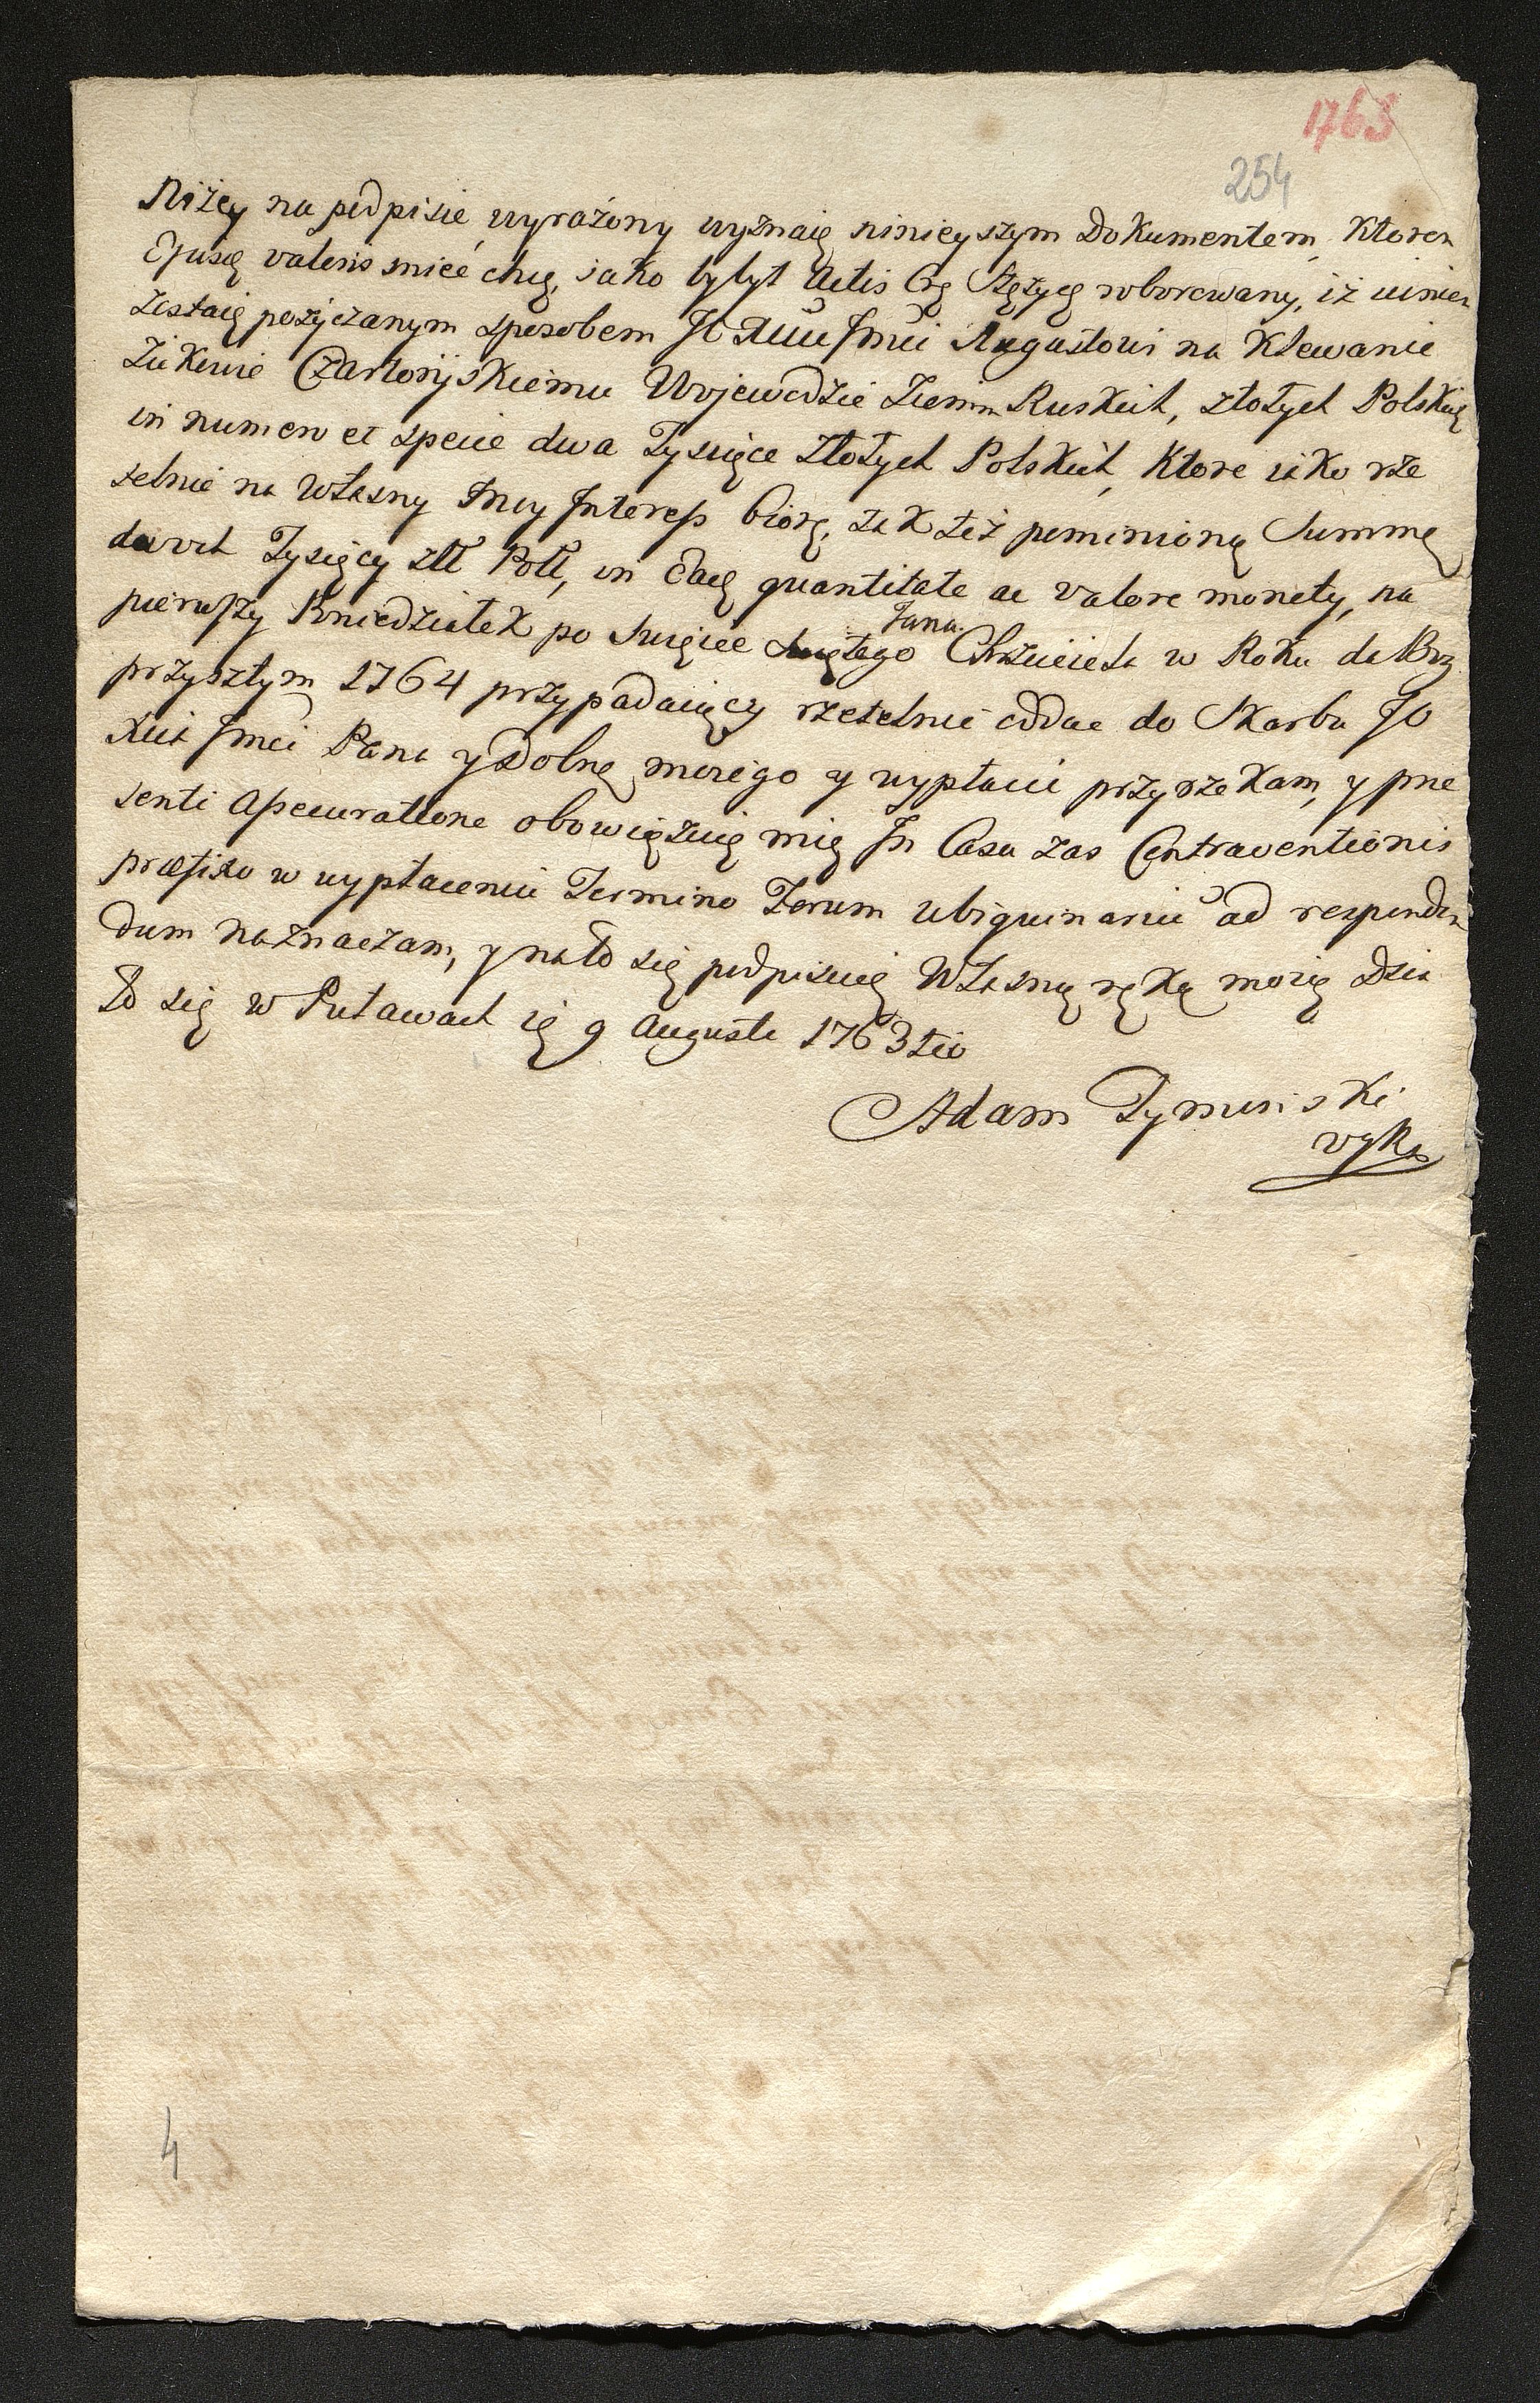 1763
254
Niżey na podpisie wyrażony wyznaię ninieyszym Dokumentem, Ktoren
valoris mieć chcę, iako byłyt Actis roborowany, iż winien
zostaię pożyczanym sposobem Augustowi na Klewanie
Żukowie Czartoryskiemu Wojewodzie Ziemm Ruskich, złotych Polskich
in numero et specie dwa Tysięce Złotych Polskich, Ktore iako rze
telnie na Własny Interess biorę, tak też pominioną Summę
dwoch Tysięcy złł Poll, in quantitate ac valore monety, na
pierwszy Poniedziałek po Swięcie Swiętego Jana Chrzciciela w Roku da Bog
przyszłym 1764 przypadaiący rzetelnie oddac do Skarbu JO
Xcia Jmci Pana y Dobrę moiego y wypłacić przyrzekam, y prae
senti Assecuratione obowięzuię mię In Casu zas Contraventionis
praefixo w wypłaceniu Termino Forum ubiquinariū ad responden
dum naznaczam, y na to się podpisuię Własną ręką moią Dzia
ło się w Puławach 9 Augusti 1763tio
Adam Tyminski
4